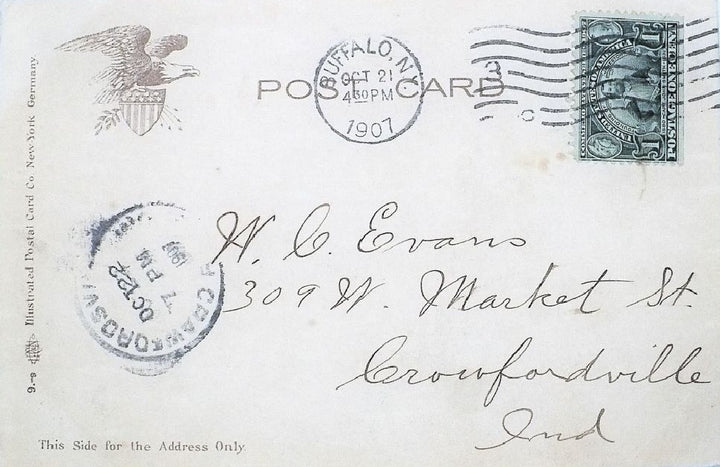 BUFFALO, N.Y.
OCT 21
4 30 PM
1907
POST CARD
1 1
POSTAGE ONE CENT
Illustrated Postal Card Co. New-York Germany.
9.-9
CRAWFORDSV
OCT 22
7 PM
1907
W. C. Evans
309 W. Market St.
Crowfordville
Ind
This Side for the Address Only.